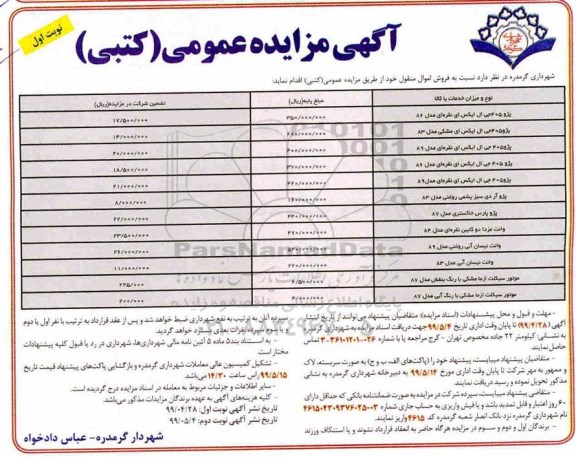 نوبت اول
آگهی مزایده عمومی (کتبی)
شهرداری گرمدره در نظر دارد نسبت به فروش اموال منقول خود از طریق مزایده عمومی(کتبی) اقدام نماید:
نوع و میزان خدمات یا کالا مبلغ پایه(ریال) تضمین شرکت در مزایده(ریال)
پژو ۴۰۵جی ال ایکس ای نقره‌ای مدل ۸۶ ۳۵۰/۰۰۰/۰۰۰ ۱۷/۵۰۰/۰۰۰
پژو۴۰۵جی ال ایکس ای مشکی مدل ۸۳ ۲۸۰/۰۰۰/۰۰۰ ۱۴/۰۰۰/۰۰۰
پژو۴۰۵جی ال ایکس ای نقره‌ای مدل ۸۹ ۴۰۰/۰۰۰/۰۰۰ ۲۰/۰۰۰/۰۰۰
پژو ۴۰۵جی ال ایکس ای نقره‌ای مدل ۸۶ ۳۷۰/۰۰۰/۰۰۰ ۱۸/۵۰۰/۰۰۰
پژو۴۰۵جی ال ایکس ای نقره‌ای مدل ۸۹ ۴۲۰/۰۰۰/۰۰۰ ۲۱/۰۰۰/۰۰۰
پژو آر دی سبز یشمی روغنی مدل ۸۳ ۱۶۰/۰۰۰/۰۰۰ ۸/۰۰۰/۰۰۰
پژو پارس خاکستری مدل ۸۷ ۴۴۰/۰۰۰/۰۰۰ ۲۲/۰۰۰/۰۰۰
وانت مزدا دو کابین نقره‌ای مدل ۸۴ ۴۷۰/۰۰۰/۰۰۰ ۲۳/۵۰۰/۰۰۰
وانت نیسان آبی روغنی مدل ۸۹ ۵۲۰/۰۰۰/۰۰۰ ۲۶/۰۰۰/۰۰۰
وانت نیسان آبی مدل ۸۳ ۲۲۰/۰۰۰/۰۰۰ ۱۱/۰۰۰/۰۰۰
موتور سیکلت آزما مشکی با رنگ بنفش مدل ۸۷ ۴/۵۰۰/۰۰۰ ۲۲۵/۰۰۰
موتور سیکلت آزما مشکی با رنگ آبی مدل ۸۷ ۴/۰۰۰/۰۰۰ ۲۰۰/۰۰۰
ParsNamadData
- مهلت و قبول و محل پیشنهادات (اسناد مزایده): متقاضیان پیشنهاد می‌توانند از تاریخ انتشار
آگهی (۹۹/۴/۲۸) تا پایان وقت اداری تاریخ ۹۹/۵/۴ جهت دریافت اسناد مزایده به شهرداری گرمدره
به نشانی: کیلومتر ۲۲ جاده مخصوص تهران - کرج مراجعه یا با شماره ۰۲۶-۳۶۱۰۱۲۰۱-۳ تماس
حاصل نمایند.
- متقاضیان پیشنهاد میبایست، پیشنهاد خود را (پاکت‌های الف، ب و ج) به صورت سربسته، لاک
و ممهور به مهر شرکت تا پایان وقت اداری مورخ ۹۹/۵/۱۴ به دبیرخانه شهرداری گرمدره به نشانی
مذکور تحویل نموده و رسید دریافت نمایند.
- متقاضی پیشنهاد میبایست، سپرده شرکت در مزایده به صورت ضمانتنامه بانکی که حداقل دارای
۶۰ روز اعتبار و قابل تمدید باشد و یا فیش واریزی به حساب جاری شماره
نام شهرداری گرمدره نزد بانک انصار شعبه گرمدره کد ۴۶۱۵ واریز نمایند.
- برندگان اول و دوم و سوم در مزایده هرگاه حاضر به انعقاد قرارداد نشوند و یا استنکاف ورزند
سپرده آنان به ترتیب به نفع شهرداری ضبط خواهد شد و پس از عقد قرارداد به ترتیب با نفر اول یا دوم
- به استناد بند ماده ۵ آئین نامه مالی شهرداری‌ها، شهرداری در رد یا قبول کلیه پیشنهادات
مختار است
- تشکیل کمیسیون عالی معاملات شهرداری گرمدره و بازگشایی پاکت‌های پیشنهاد قیمت تاریخ
۹۹/۵/۱۵ راس ساعت ۱۴/۳۰ می‌باشد
- سایر اطلاعات و جزئیات مربوط به معامله در اسناد مزایده درج گردیده است.
- کلیه هزینه‌های آگهی به عهده برندگان مزایدات مذکور می‌باشد.
تاریخ نشر آگهی نوبت اول: ۹۹/۰۴/۲۸
تاریخ نشر آگهی نوبت دوم: ۹۹/۰۵/۰۴
شهردار گرمدره- عباس دادخواه